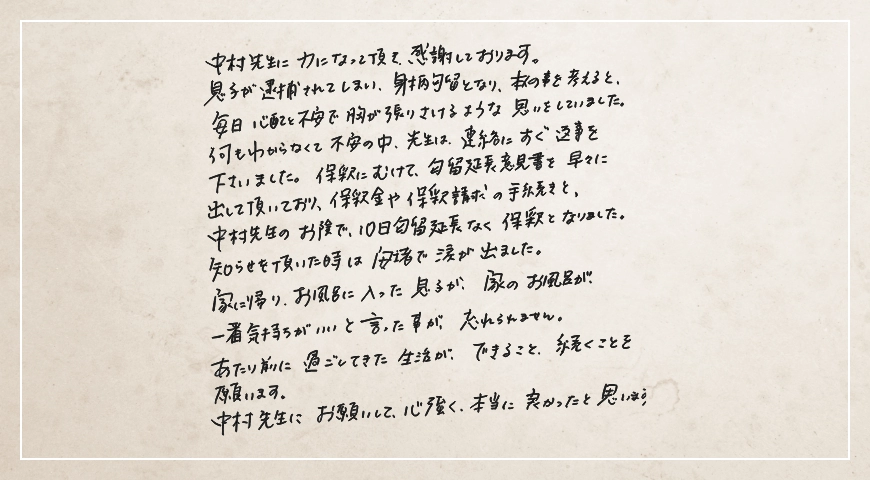 中村先生に 力になって頂き、感謝しております。
息子が逮捕されてしまい、身柄勾留となり、本人の事を考えると、
毎日 心配と不安で 胸が張りさけるような 思いをしていました。
何もわからなくて 不安の中、先生は、連絡に すぐ 返事を
下さいました。保釈にむけて、勾留延長意見書を 早々に
出して頂いており、保釈金や 保釈請求の手続きと、
中村先生の お陰で、10日勾留延長なく 保釈と なりました。
知らせを頂いた時は 安堵で 涙が 出ました。
家に帰り、お風呂に 入った 息子が、家の お風呂が、
一番気持ちがいい と 言った 事が、忘れられません。
あたり前に 過ごしてきた 生活が、できること、続くことを
願います。
中村先生に お願いして、心強く、本当に 良かったと 思います